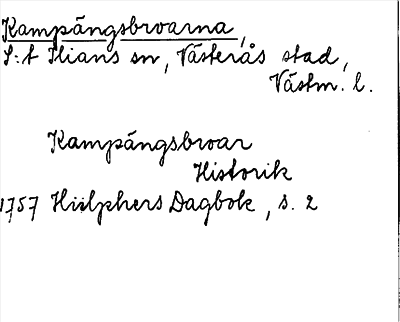 Kampängsbroarna,
S:t Ilians sn, Västerås stad,
Västm. l.
Kampängsbroar
Historik
1757 Hülphers Dagbok, s. 2